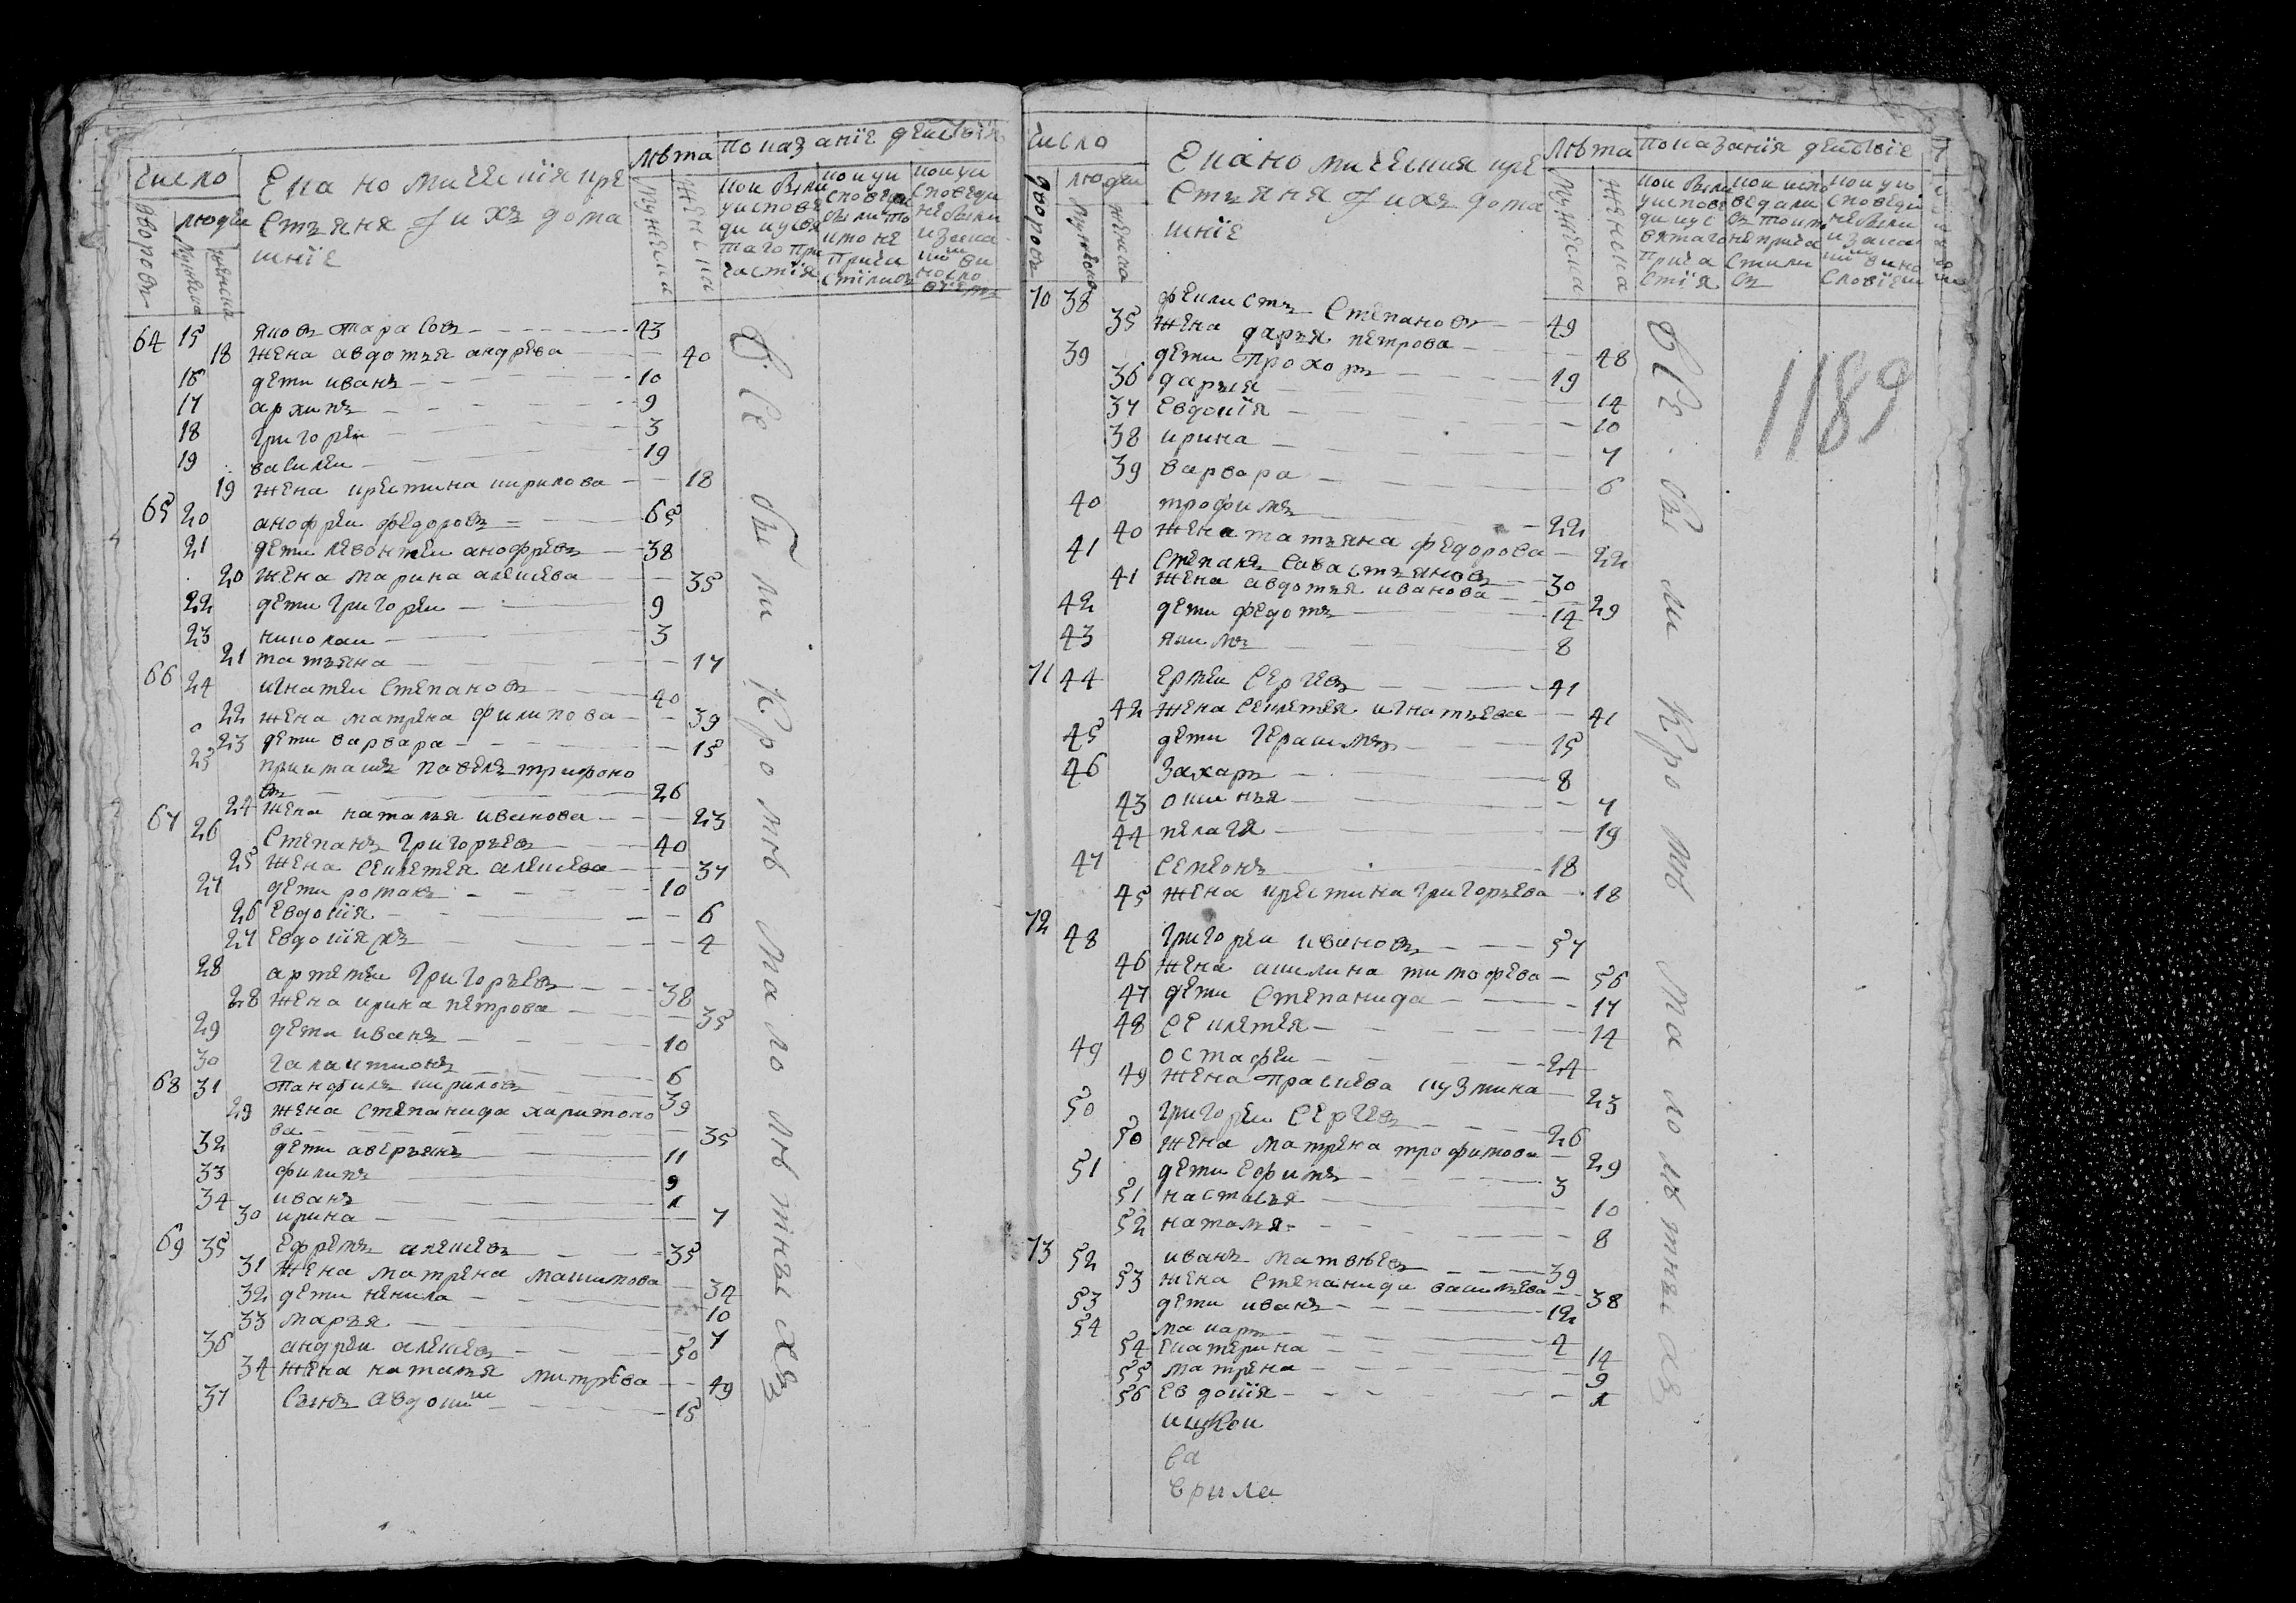 число
Екано мическия кре
стъяня ї ихъ дома
шніе
лѣта
показаніе деиствія
дворовъ
людеи
мужеска
женска
мужеска
женска
кои были
у испове
ди и у свя
таго при
частія
кои у и
споведи
были то
кмо не
прича
стілисъ
кои у и
споведи
не были
64 15 яковъ тарасовъ 43
18 жена авдотья андрева 40
16 дети иванъ 10
17 архипъ 9
18 григореи 3
19 василеи 19
19 жена крестина кирилова 18
65 20 анофреи федоровъ 65
21 дети левонтеи анофревъ 38
20 жена марина алексева 35
22 дети григореи 9
23 николаи 3
21 татьяна 17
66 24 игнатеи степановъ 40
22 жена матрена филипова 39
23 дети варвара 15
25 приимашъ павелъ трифоно
въ 26
24 жена наталья иванова 23
67 26 степанъ григорьевъ 40
25 жена секлетея алексева 37
27 дети романъ 10
26 евдокїя 6
27 евдокїя жъ 4
28 артемеи григорьевъ 38
28 жена ирина петрова 35
29 дети иванъ 10
30 галактионъ 6
68 31 панфилъ кириловъ 39
29 жена степанида харитоно
ва 35
32 дети аверьянъ 11
33 филипъ 9
34 иванъ 1
30 ирина 7
69 35 ефремъ алексевъ 35
31 жена матрена макимова 34
32 дети ненила 10
33 марья 7
36 андреи алексевъ 50
34 жена наталя митрева 49
37 сынъ авдоким 15
все были кроме малолѣтныхъ
число
Екано мическия кре
стъяня ї ихъ дома
шніе
лѣта
показанія деиствіе
дворовъ
людеи
мужеска
женска
мужеска
женска
1189
70 38 феклистъ степановъ 49
35 жена дарья петрова 48
39 дети прохоръ 19
36 дарья 14
37 евдокїя 10
38 ирина 7
39 варвара 6
40 трофимъ 22
40 жена татьяна федорова 22
41 степанъ савастьяновъ 30
41 жена авдотья иванова 29
42 дети федотъ 14
43 якимъ 8
71 44 ермеи сергевъ 41
42 жена секлетея игнатьева 41
45 дети герасимъ 15
46 захаръ 8
43 оксинья 7
44 пелагея 19
47 семенъ 18
45 жена крестина григорьева 18
72 48 григореи ивановъ 57
46 жена акилина тимофева 56
47 дети степанида 17
48 секлетея 14
49 остафеи 24
49 жена прасковя кузмина 23
50 григореи сергевъ 26
50 жена матрена трофимова 29
51 дети ефимъ 3
51 настасья 10
52 наталя 8
73 52 иванъ матвѣевъ 39
53 жена степанида васильева 38
53 дети иванъ 12
54 макаръ 4
54 екатерина 14
55 матрена 9
56 евдокїя 1
всѣ были кроме малолѣтныхъ